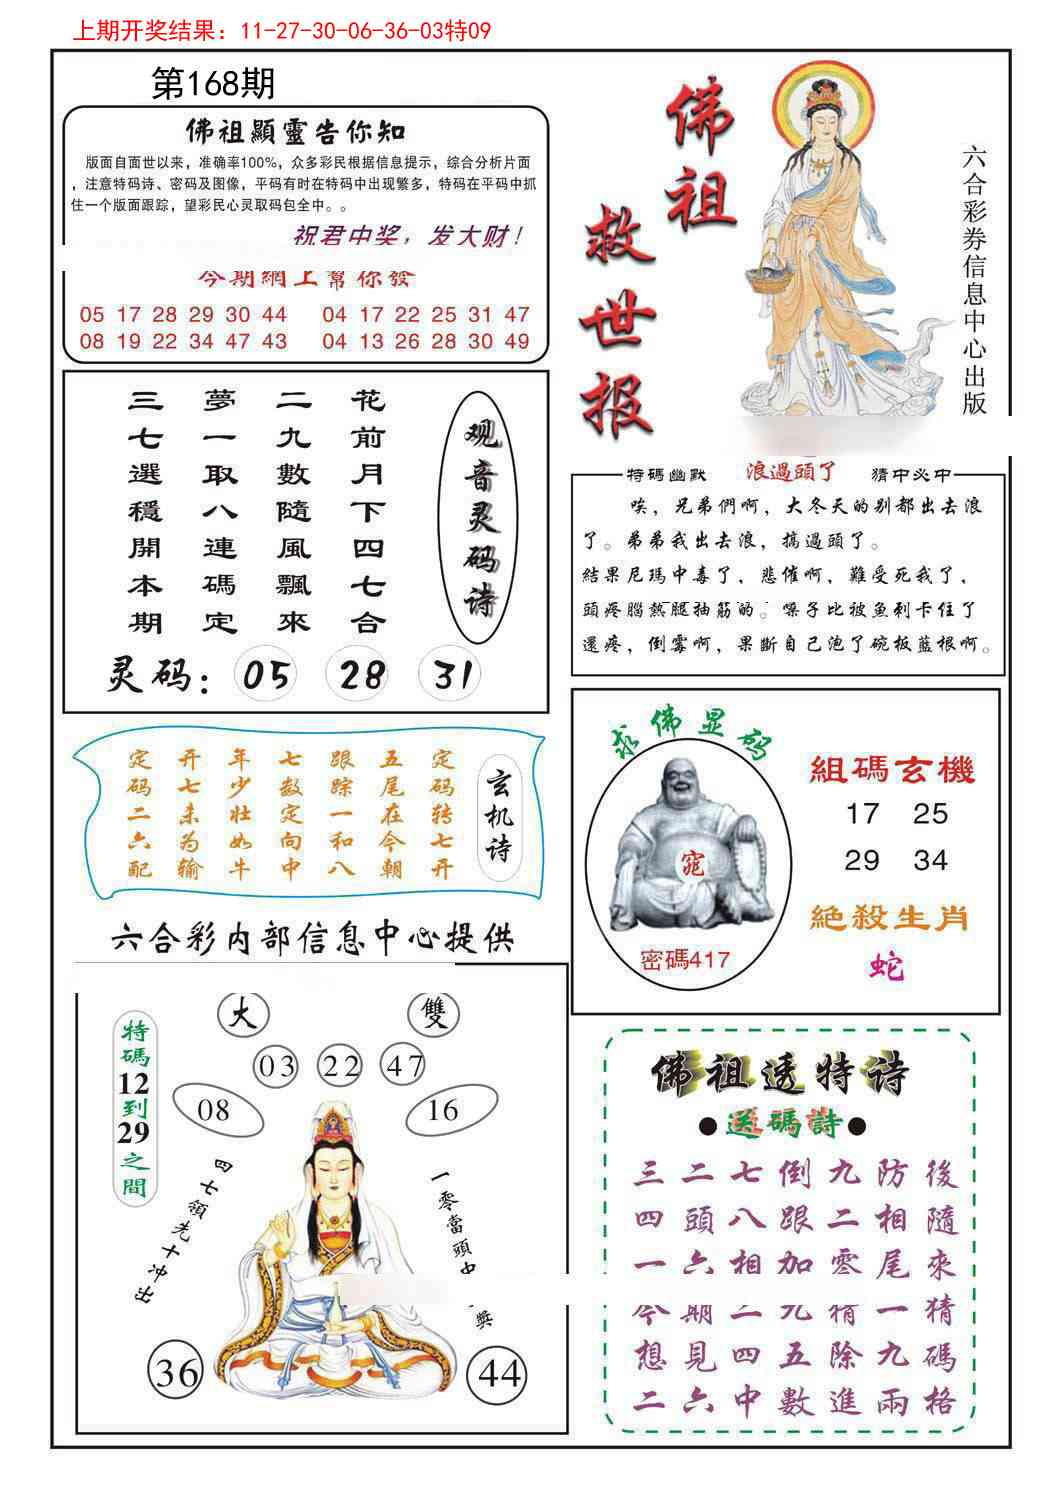 上期开奖结果：11-27-30-06-36-03特09
第168期
佛祖顯靈告你知
版面自面世以来，准确率100%，众多彩民根据信息提示，综合分析片面
，注意特码诗、密码及图像，平码有时在特码中出现繁多，特码在平码中抓
住一个版面跟踪，望彩民心灵取码包全中。。
祝君中奖，发大财！
今期網上幫你發
05 17 28 29 30 44 04 17 22 25 31 47
08 19 22 34 47 43 04 13 26 28 30 49
佛祖
救世报
六合彩券信息中心出版
观音灵码诗
花前月下四七合
二九數隨風飄來
夢一取八連碼定
三七選穩開本期
灵码：05 28 31
特碼幽默 浪過頭了 猜中必中
唉，兄弟們啊，大冬天的别都出去浪
了。弟弟我出去浪，搞過頭了。
結果尼瑪中毒了，悲催啊，難受死我了，
頭疼腦熱腿抽筋的。嗓子比被魚刺卡住了
還疼，倒霉啊，果斷自己泡了碗板藍根啊。
玄机诗
定码转七开
五尾在今朝
跟踪一和八
七数定向中
年少壮如牛
开七未为输
定码二六配
求佛显码
窕
密碼417
組碼玄機
17 25
29 34
絕殺生肖
蛇
六合彩内部信息中心提供
特碼12到29之間
大 雙
03 22 47
08 16
四七領先十冲出
一零當頭中
獎
36 44
佛祖透特诗
●送碼詩●
三二七倒九防後
四頭八跟二相隨
一六相加零尾來
今期二九精一猜
想見四五除九碼
二六中數進兩格